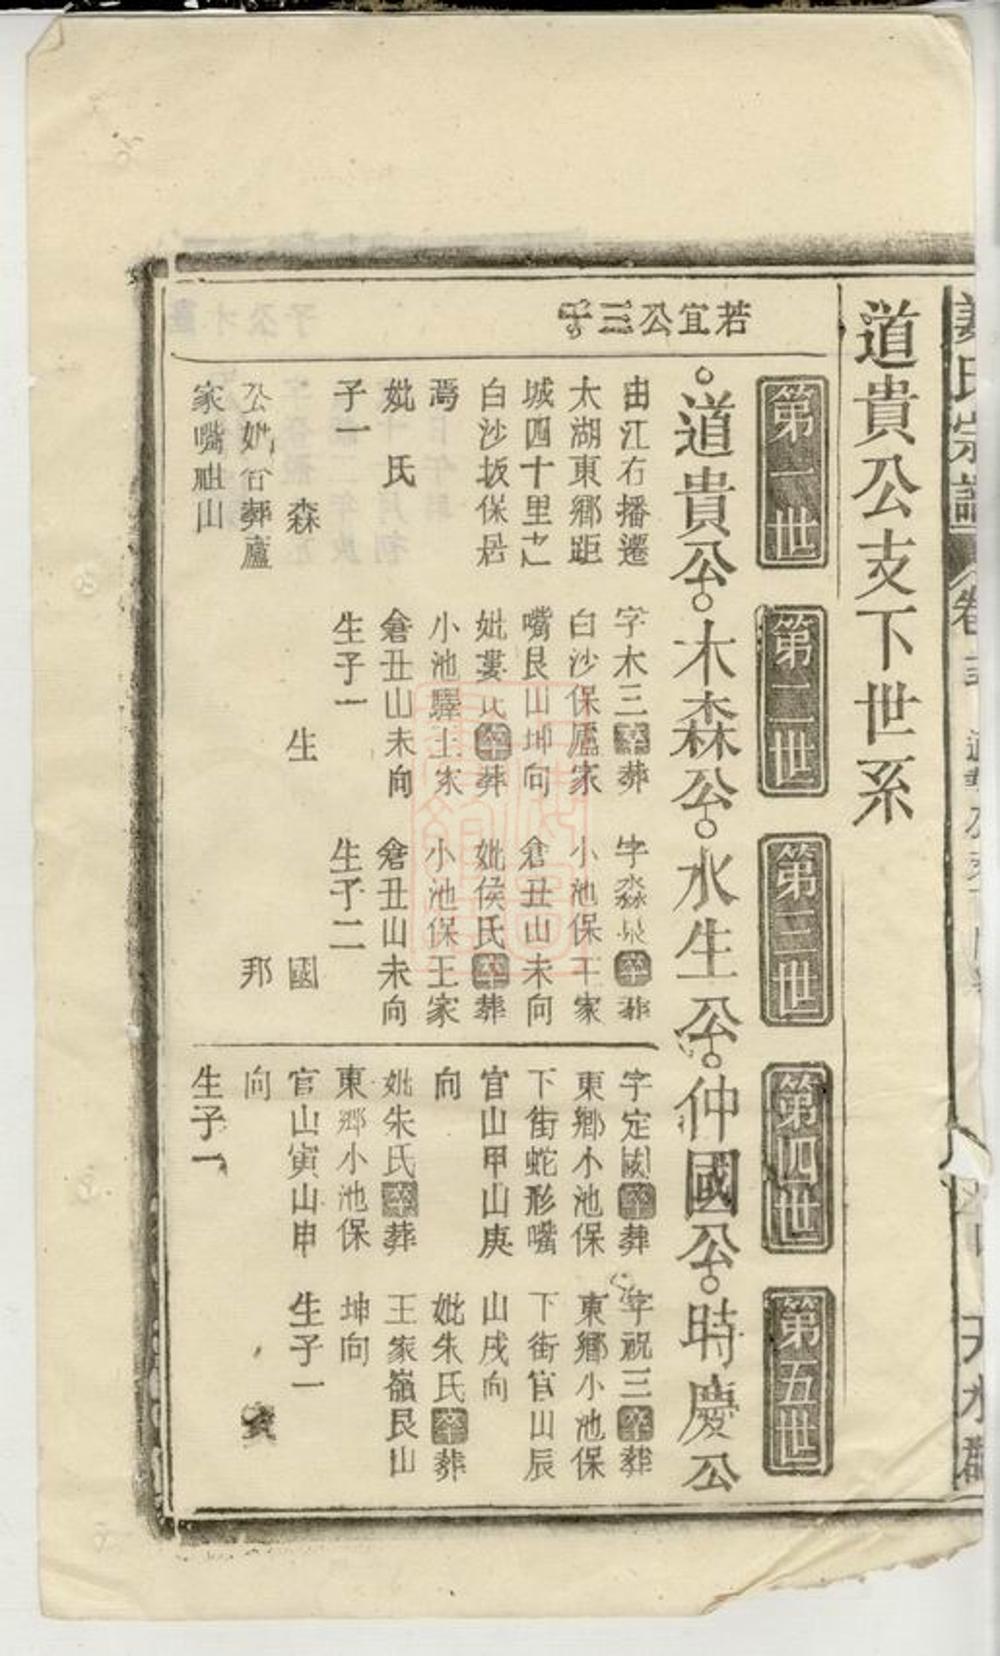 氏宗譜
天水郡
道貴公支下世系
第一世
若宜公三子
道貴公
由江右播遷
太湖東鄉距
城四十里之
白沙坂保居
焉
妣 氏
子一
森
公妣合葬廬
家嘴祖山
第二世
木森公
字木三卒葬
白沙保廬家
嘴艮山坤向
妣婁氏卒葬
小池驛王家
倉丑山未向
生子一
生
第三世
水生公
字淼泉卒葬
小池保王家
倉丑山未向
妣侯氏卒葬
小池保王家
倉丑山未向
生子二
國
邦
第四世
仲國公
字定國卒葬
東鄉小池保
下街蛇形嘴
官山甲山庚
向
妣朱氏卒葬
東鄉小池保
官山寅山申
向
生子一
第五世
時慶公
字祝三卒葬
東鄉小池保
下街官山辰
山戌向
妣朱氏卒葬
王家嶺艮山
坤向
生子一